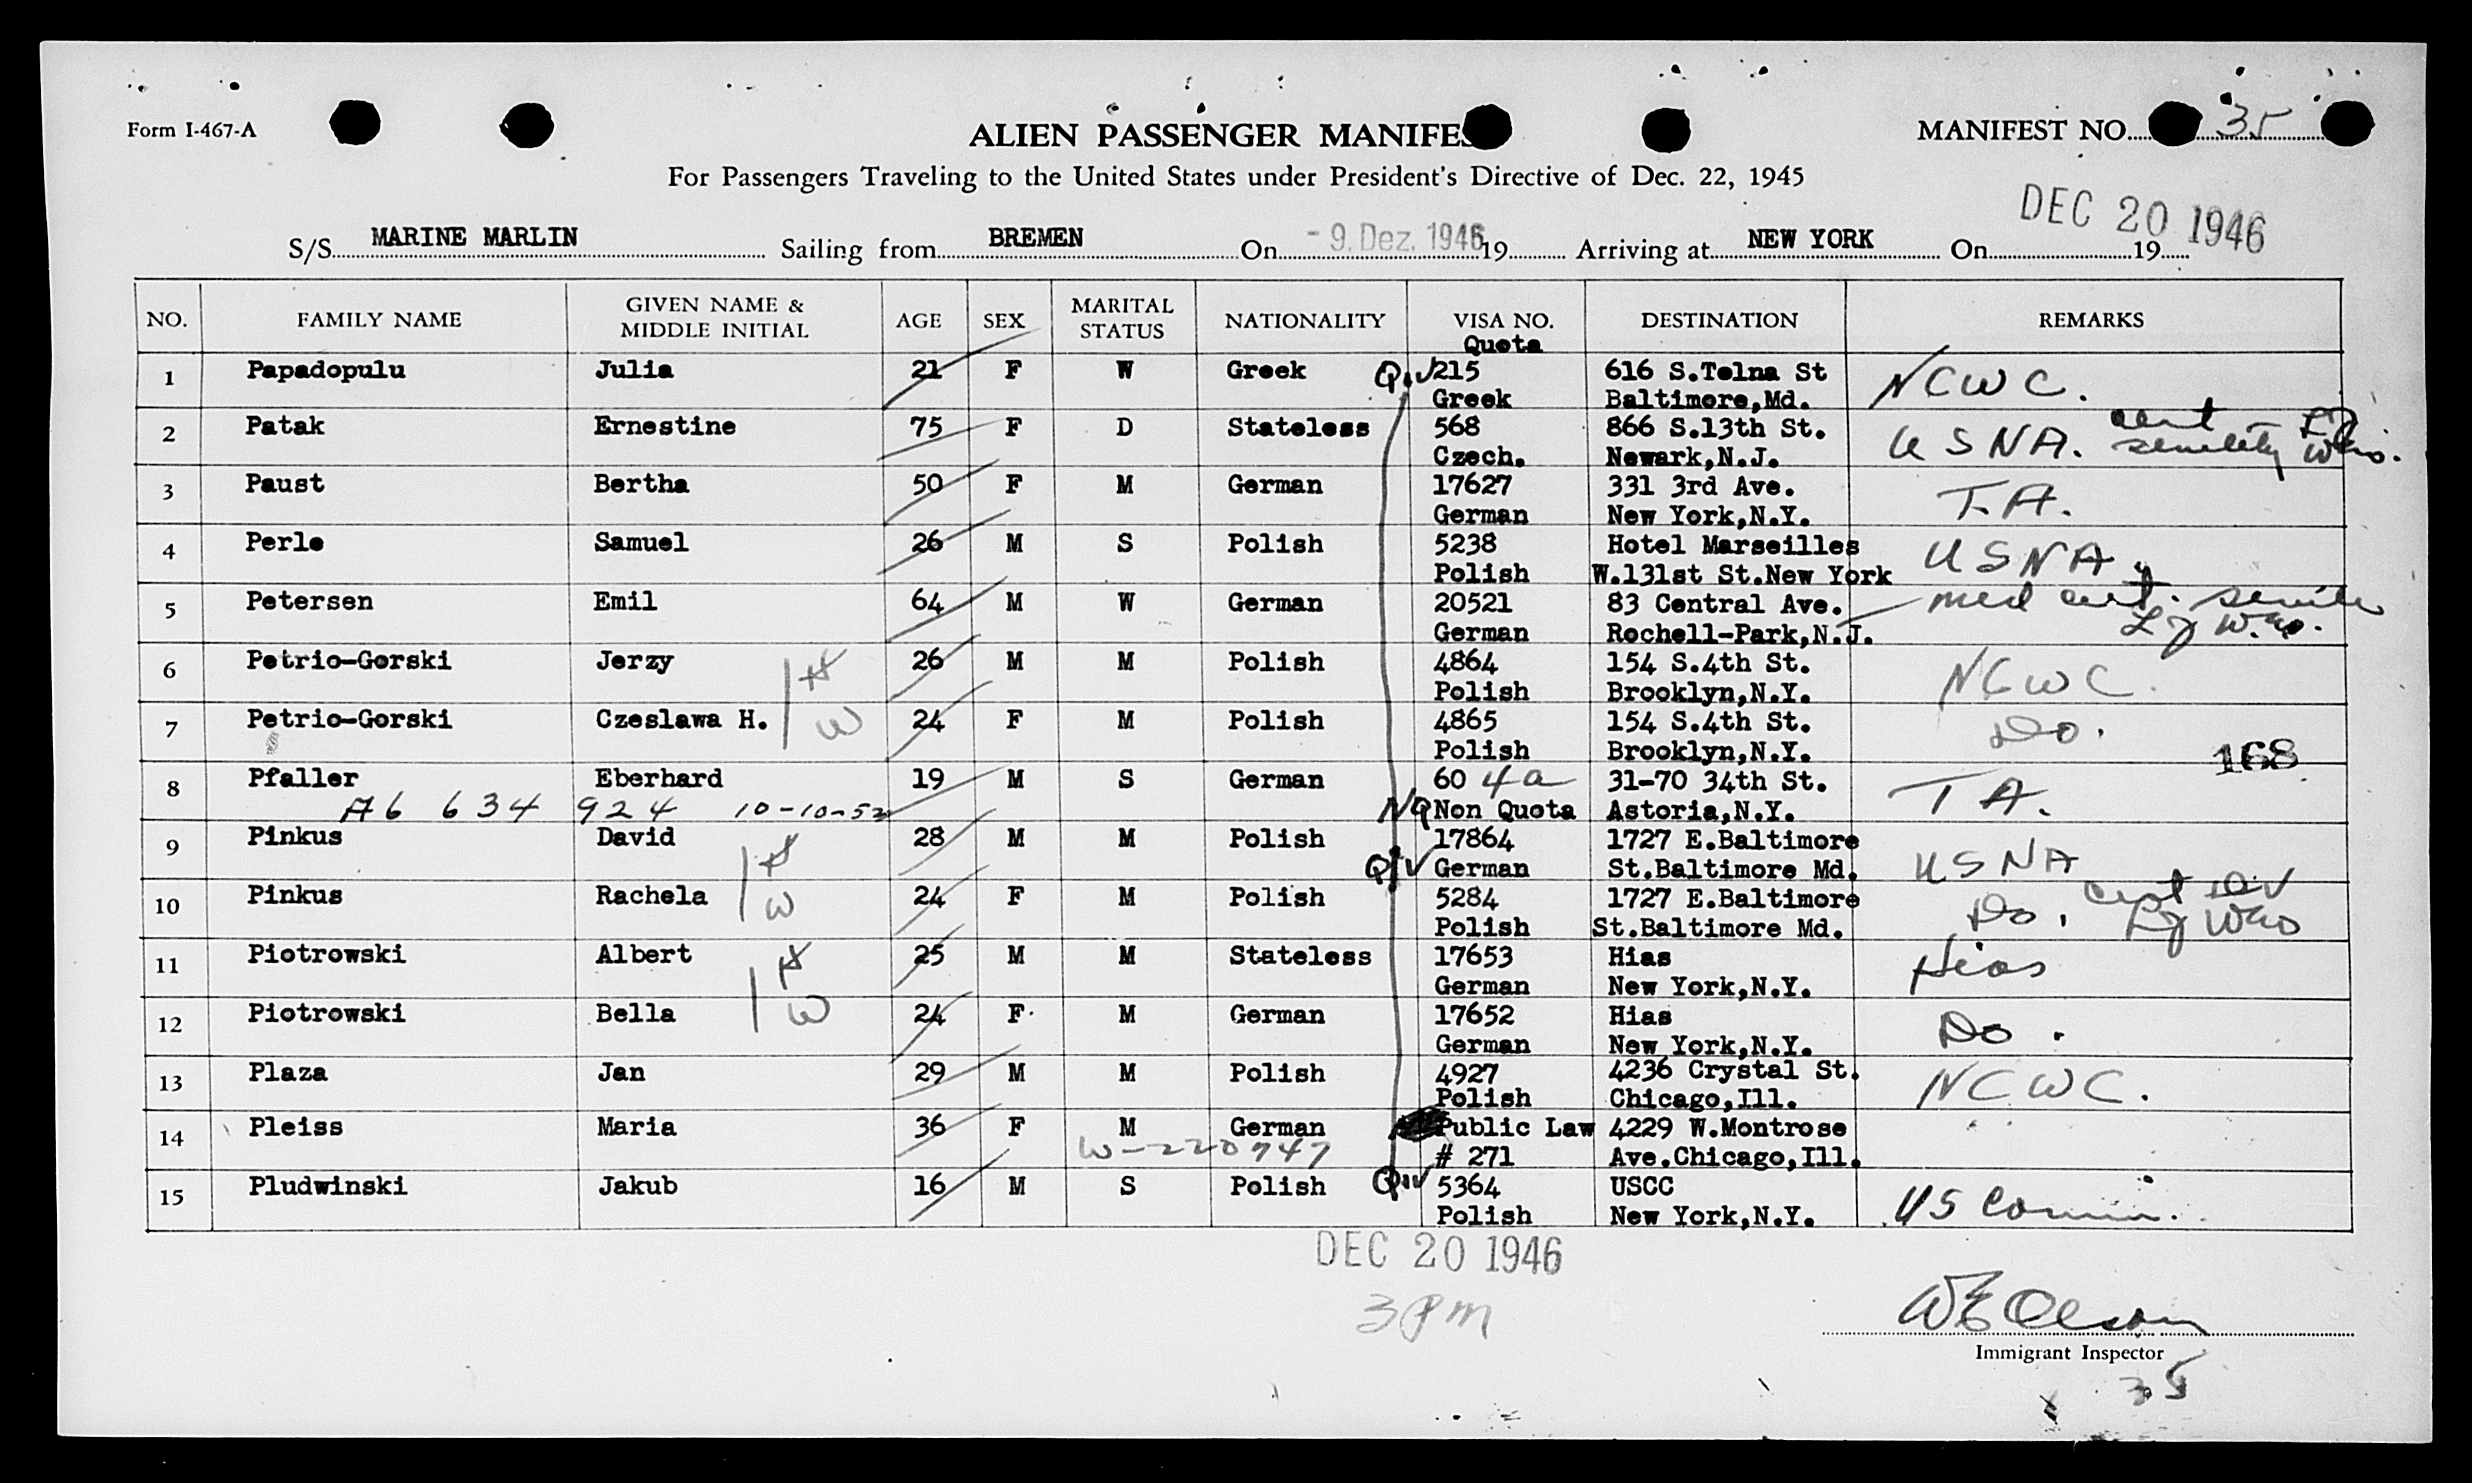 Form I-467-A
ALIEN PASSENGER MANIFES
MANIFEST NO. 35
For Passengers Traveling to the United States under President's Directive of Dec. 22, 1945
DEC 20 1946
S/S MARINE MARLIN Sailing from BREMEN On - 9. Dez. 1946 19 Arriving at NEW YORK On 19
NO. FAMILY NAME GIVEN NAME & MIDDLE INITIAL AGE SEX MARITAL STATUS NATIONALITY VISA NO. Quota DESTINATION REMARKS
1 Papadopulu Julia 21 F W Greek 215 616 S.Tolna St NCWC.
Greek Baltimore,Md.
2 Patak Ernestine 75 F D Stateless 568 866 S.13th St. USNA. cert
Czech. Newark,N.J. senility
3 Paust Bertha 50 F M German 17627 331 3rd Ave. T.A.
German New York,N.Y.
4 Perle Samuel 26 M S Polish 5238 Hotel Marseilles USNA
Polish W.131st St.New York
5 Petersen Emil 64 M W German 20521 83 Central Ave. med cert.
German Rochell-Park,N.J.
6 Petrio-Gorski Jerzy H 26 M M Polish 4864 154 S.4th St. NCWC.
Polish Brooklyn,N.Y.
7 Petrio-Gorski Czeslawa H. W 24 F M Polish 4865 154 S.4th St. Do.
Polish Brooklyn,N.Y. 168
8 Pfaller Eberhard 19 M S German 60 4a 31-70 34th St. TA.
A6 634 924 10-10-52 NQ Non Quota Astoria,N.Y.
9 Pinkus David H 28 M M Polish 17864 1727 E.Baltimore USNA
German St.Baltimore Md.
10 Pinkus Rachela W 24 F M Polish 5284 1727 E.Baltimore Do. cert
Polish St.Baltimore Md.
11 Piotrowski Albert H 25 M M Stateless 17653 Hias Hias
German New York,N.Y.
12 Piotrowski Bella W 24 F M German 17652 Hias Do.
German New York,N.Y.
13 Plaza Jan 29 M M Polish 4927 4236 Crystal St. NCWC.
Polish Chicago,Ill.
14 Pleiss Maria 36 F M German Public Law 4229 W.Montrose
W-220747 # 271 Ave.Chicago,Ill.
15 Pludwinski Jakub 16 M S Polish 5364 USCC US Comm.
Polish New York,N.Y.
DEC 20 1946
3 PM
W E Olson
Immigrant Inspector
35